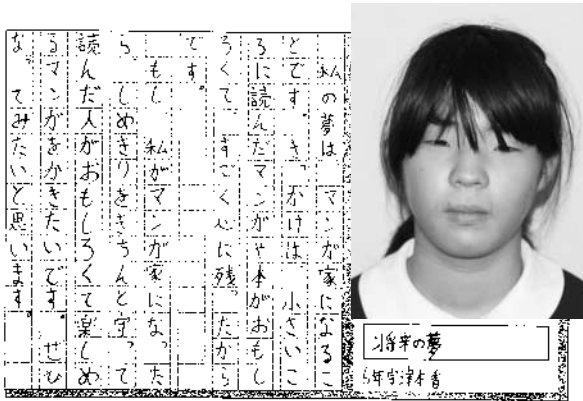 私の夢は、マンガ家になるこ
とです。きっかけは、小さいこ
ろに読んだマンガや本がおもし
ろくて、すごく心に残ったから
です。
もし、私がマンガ家になった
ら、しめきりをきちんと守って
読んだ人がおもしろくて楽しめ
るマンガをかきたいです。ぜひ
なってみたいと思います。
将来の夢
6年宇津本香